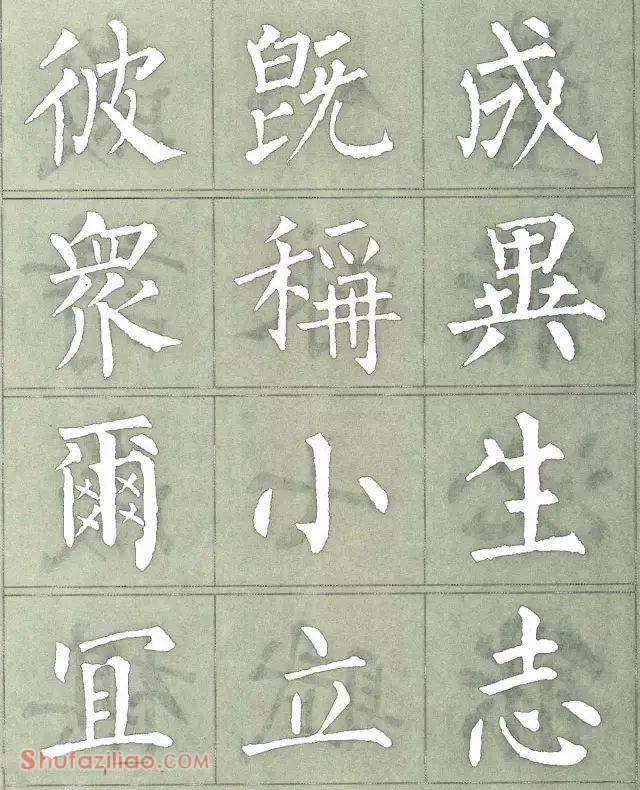 彼既成
衆稱異
爾小生
冝立志
Shufaziliao.com